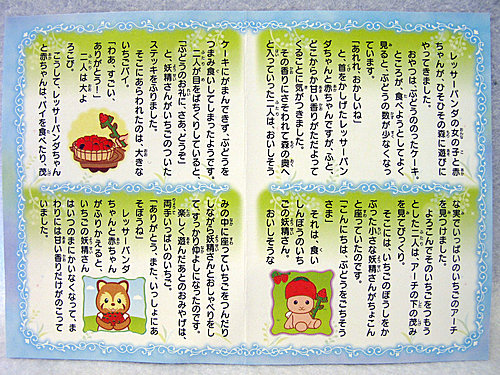 レッサーパンダの女の子と赤
ちゃんが、ひそひその森に遊びに
やってきました。
おやつは、ぶどうののったケーキ。
ところが、食べようとしてよく
見ると、ぶどうの数が少なくなっ
ています。
「あれれ、おかしいね」
と、首をかしげたレッサーパン
ダちゃんと赤ちゃんですが、ふと、
どこからか甘い香りがただよって
くることに気がつきました。
その香りにさそわれて森の奥へ
と入っていった二人は、おいしそう
な実でいっぱいのいちごのアーチ
を見つけました。
ようこんでそのいちごをつもう
とした二人は、アーチの下の茂み
を見てびっくり。
そこには、いちごのぼうしをか
ぶった小さな妖精さんがちょこん
と座っていたのです。
「こんにちは、ぶどうをごちそう
さま」
それは、食い
しんぼうのいち
ごの妖精さん。
おいしそうな
ケーキにがまんできず、ぶどうを
つまみ食いしてしまったようです。
二人が目をぱちくりしていると、
「ぶどうのお礼に、さあ、どうぞ」
と、妖精さんがいちごのついた
ステッキをふりました。
そこにあらわれたのは、大きな
いちごパイ。
「わあ、すごい、
ありがとう！」
二人は、大よ
ろこび。
こうして、レッサーパンダちゃん
と赤ちゃんは、パイを食べたり、茂
みの中に座っていちごをつんだり
しながら妖精さんとおしゃべりをし
て、すっかりなかよしになったのです。
楽しく遊んだあとのおみやげは、
両手いっぱいのいちご。
「ありがとう。また、いっしょにあ
そぼうね」
レッサーパンダ
ちゃんと赤ちゃん
がふりかえると、
いちごの妖精さん
はいつのまにかいなくなって、ま
わりには甘い香りだけがのこって
いました。